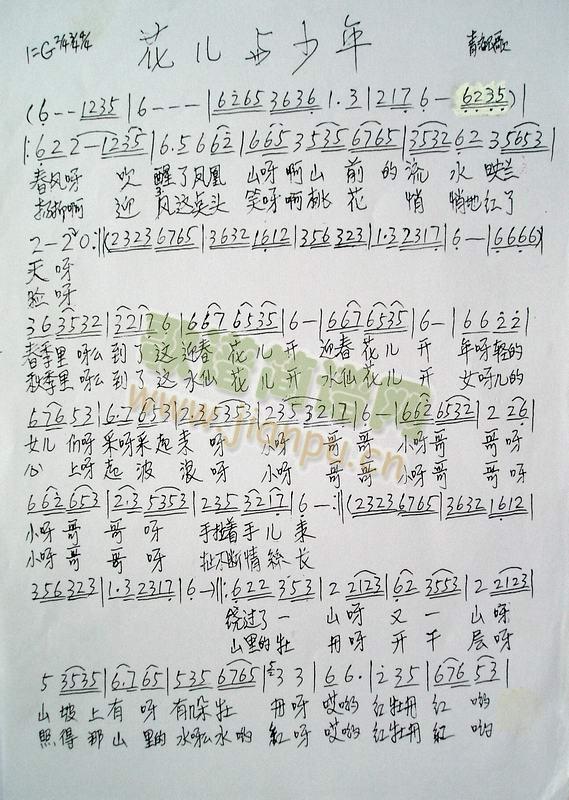 花儿与少年
1=G 2/4 3/4 4/4 青海民歌
(6 - - 1235 | 6 - - - | 6265 3636 1·3 | 217 6 - 6235) |
|: 622 2 - 1235 | 6·5 662 | 665 3535 6765 | 3532 62 35653 |
春风呀 吹 醒了凤凰 山呀啊山 前 的流 水 映兰
杨柳啊 迎 风这点头 笑呀啊桃 花 悄 悄地红了
2 - 2 0 :|| (2323 6765 | 3632 1612 | 356 323 | 1·3 2317 | 6 - | 6666)
天 呀
脸 呀
36 3532 | 3217 6 | 667 6535 | 6 - | 667 6535 | 6 - | 66 22 |
春季里 呀么 到了这 迎春 花儿 开 迎春 花儿 开 年呀轻的
秋季里 呀么 到了这 水仙 花儿 开 水仙 花儿 开 女呀儿的
676 53 | 6·7 653 | 2·35 353 | 235 3217 | 6 - | 662 6532 | 2 26 |
女儿 们呀 采呀采起来 呀 小呀 哥 哥 小呀哥 哥 呀
心 上呀 起 波 浪 呀 小呀 哥 哥 小呀哥 哥 呀
662 653 | 2·3 5353 | 235 3217 | 6 - :|| (2323 6765 | 3632 1612 |
小呀 哥 哥 呀 手拉着手 儿 来
小呀 哥 哥 呀 扯不断情 絲 长
356 323 | 1·3 2317 | 6 -) ||: 622 353 | 2 2123 | 62 3553 | 2 2123 |
绕过了一 山呀 又 一 山呀
山里的牡 丹呀 开 千 层呀
5 3535 | 6·7 65 | 535 6765 | 3 3 | 6 6· | 2 35 | 676 53 |
山 坡 上 有 呀 有朵 牡 丹呀 哎哟 红牡丹 红 哟
照 得 那 山 里的 水呀么水 哟 紅呀 哎哟 红牡丹 紅 哟
歌谱简谱网
www.jianpu.cn